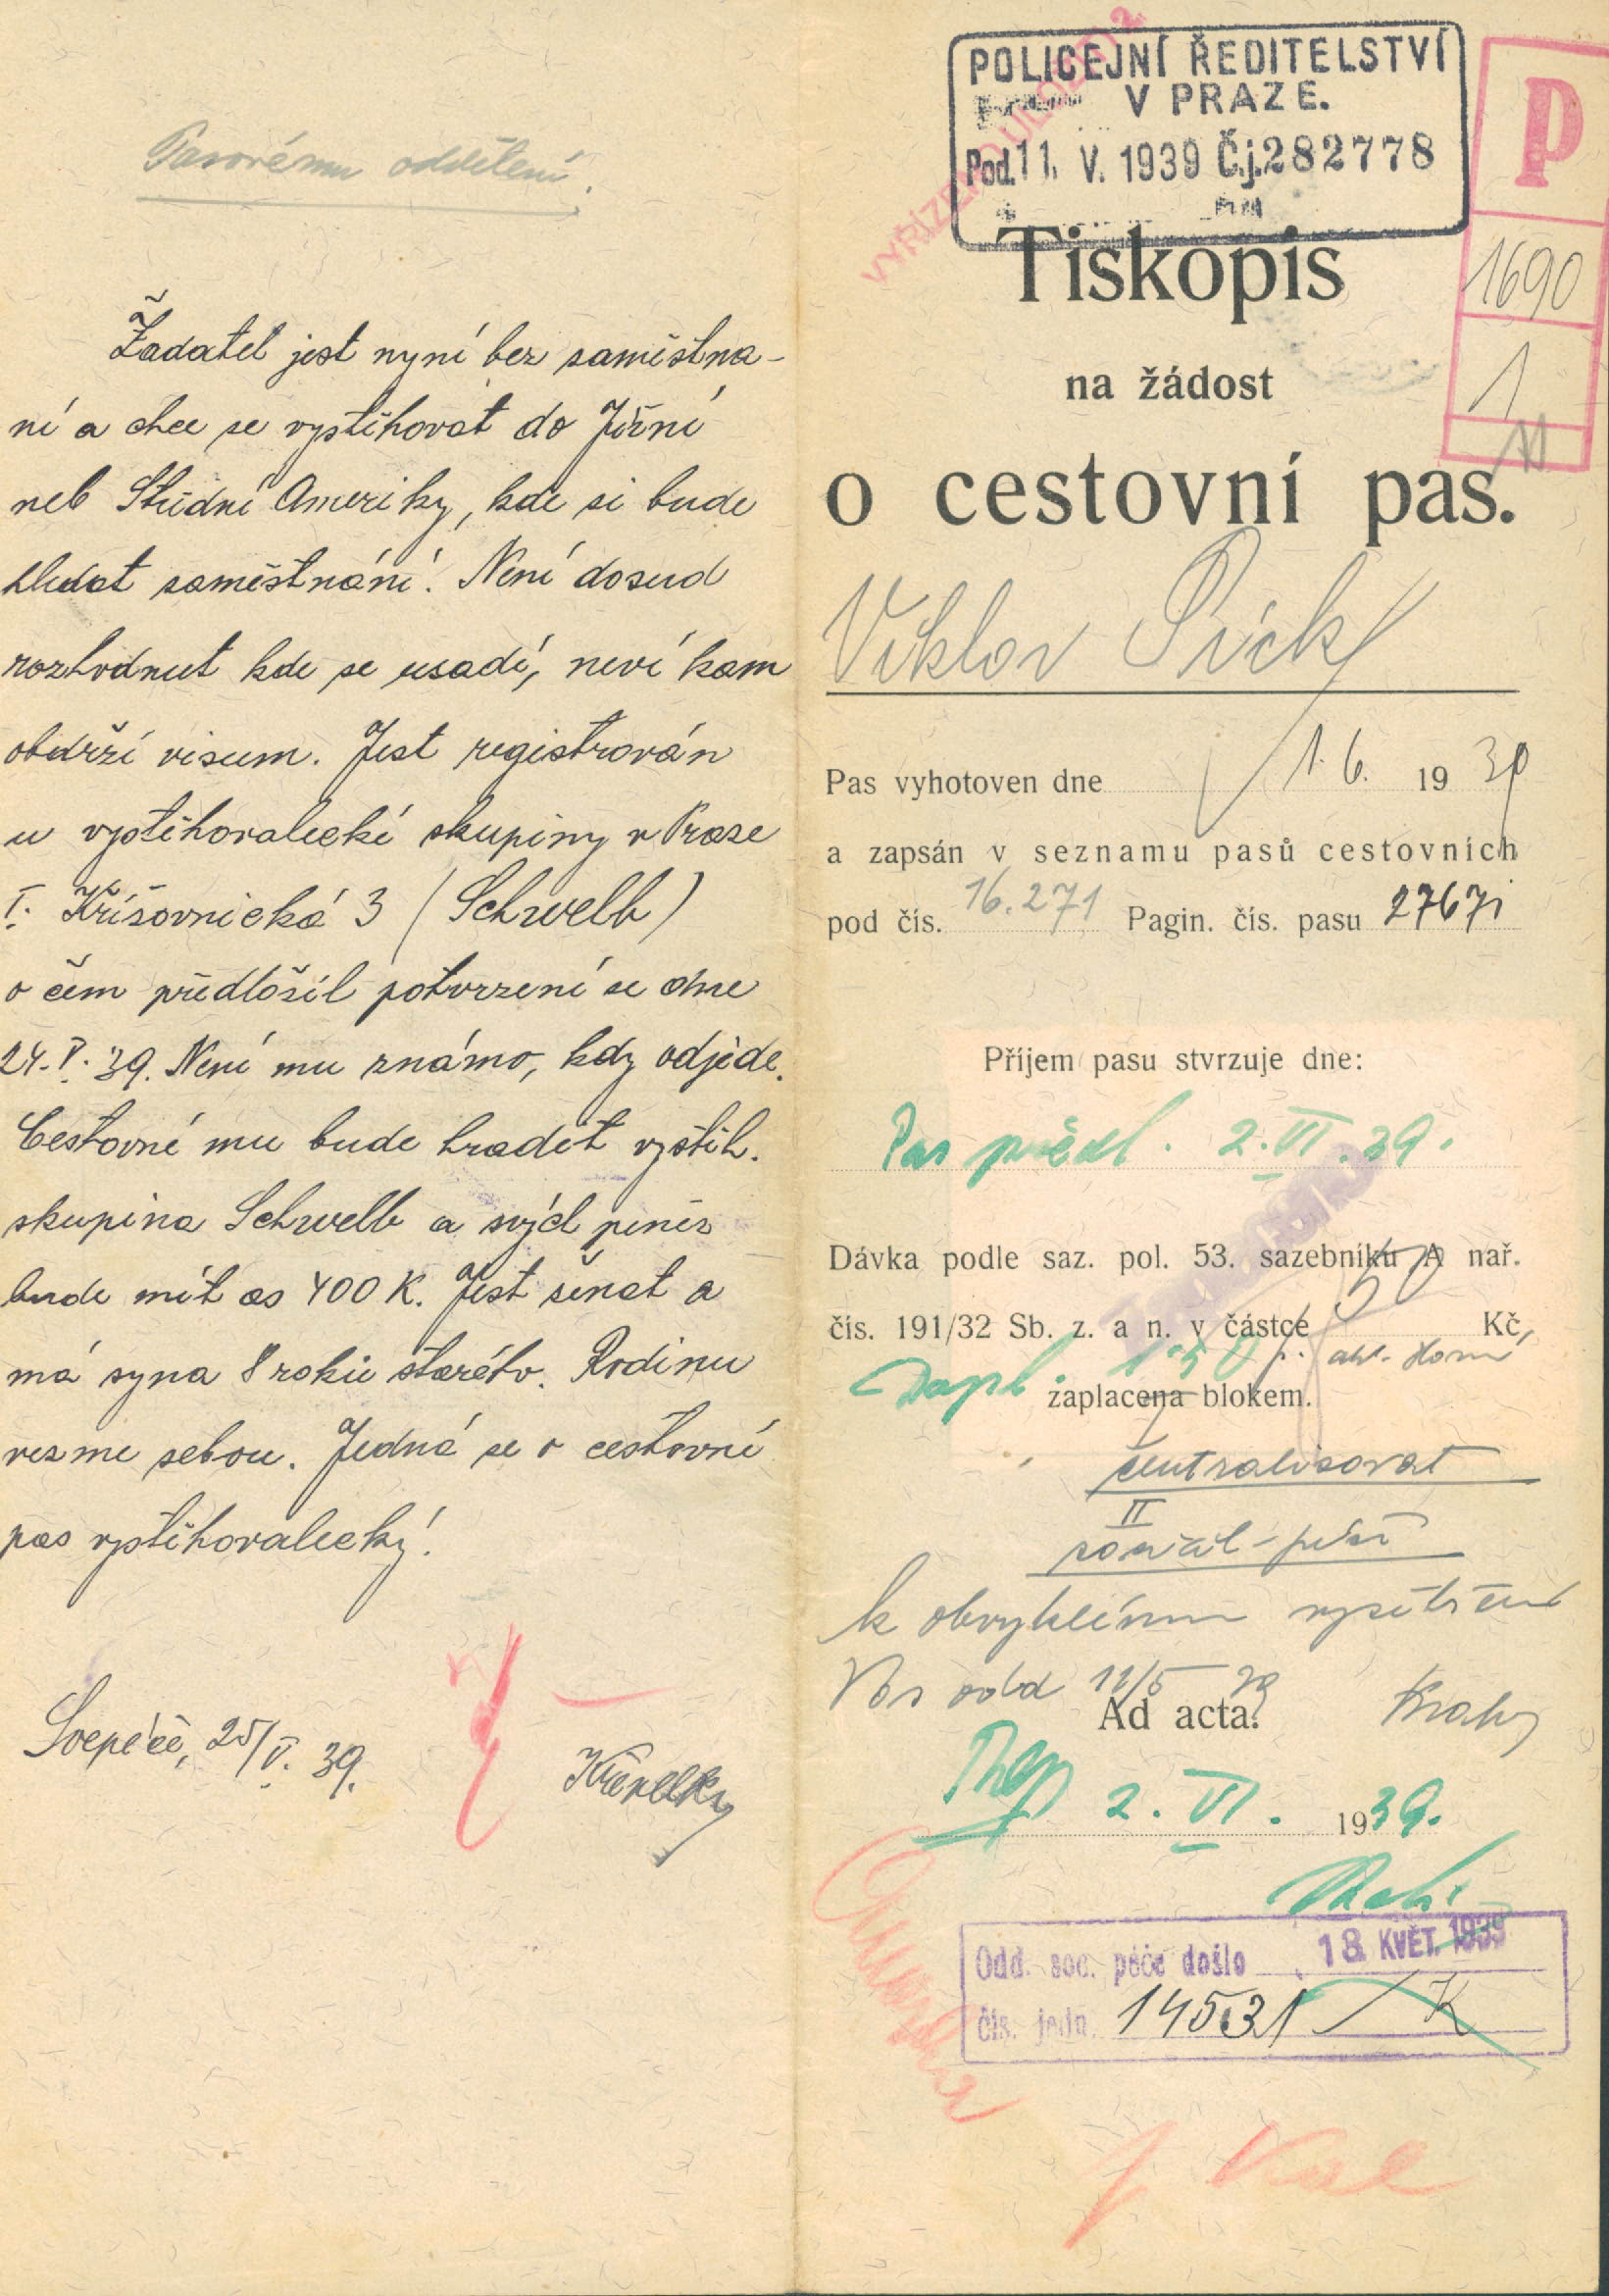 Pasovému oddělení.
Žadatel jest nyní bez zaměstna-
ní a chce se vystěhovat do Jižní
neb Střední Ameriky, kde si bude
hledat zaměstnání. Není dosud
rozhodnut kde se usadí, neví kam
obdrží visum. Jest registrován
u vystěhovalecké skupiny v Praze
I. Křižovnická 3 (Schwelb)
o čem předložil potvrzení ze dne
24.V.39. Není mu známo, kdy odjede.
Cestovné mu bude hradit vystěh.
skupina Schwelb a svých peněz
bude mít as 400 K. Jest ženat a
má syna 8 roků starého. Rodinu
vezme sebou. Jedná se o cestovní
pas vystěhovalecký!
25/V. 39.
VYŘÍZENO ULOŽIT!
POLICEJNÍ ŘEDITELSTVÍ
V PRAZE.
Pod. 11. V. 1939 Č.j. 282778
P
1690
1
Tiskopis
na žádost
o cestovní pas.
Viktor Pick
Pas vyhotoven dne 1. 6. 1939
a zapsán v seznamu pasů cestovních
pod čís. 16.271 Pagin. čís. pasu 27671
Příjem pasu stvrzuje dne:
Pas předl. 2. VI. 39.
Dávka podle saz. pol. 53. sazebníku A nař.
čís. 191/32 Sb. z. a n. v částce 50 Kč,
zaplacena blokem.
centralisovat
II
sociál-péči
k obvyklému vyšetření
odd 11/5 39
Ad acta.
2. VI. 1939.
Odd. soc. péče došlo 18. KVĚT. 1939
čís. jedn. 14531 / K